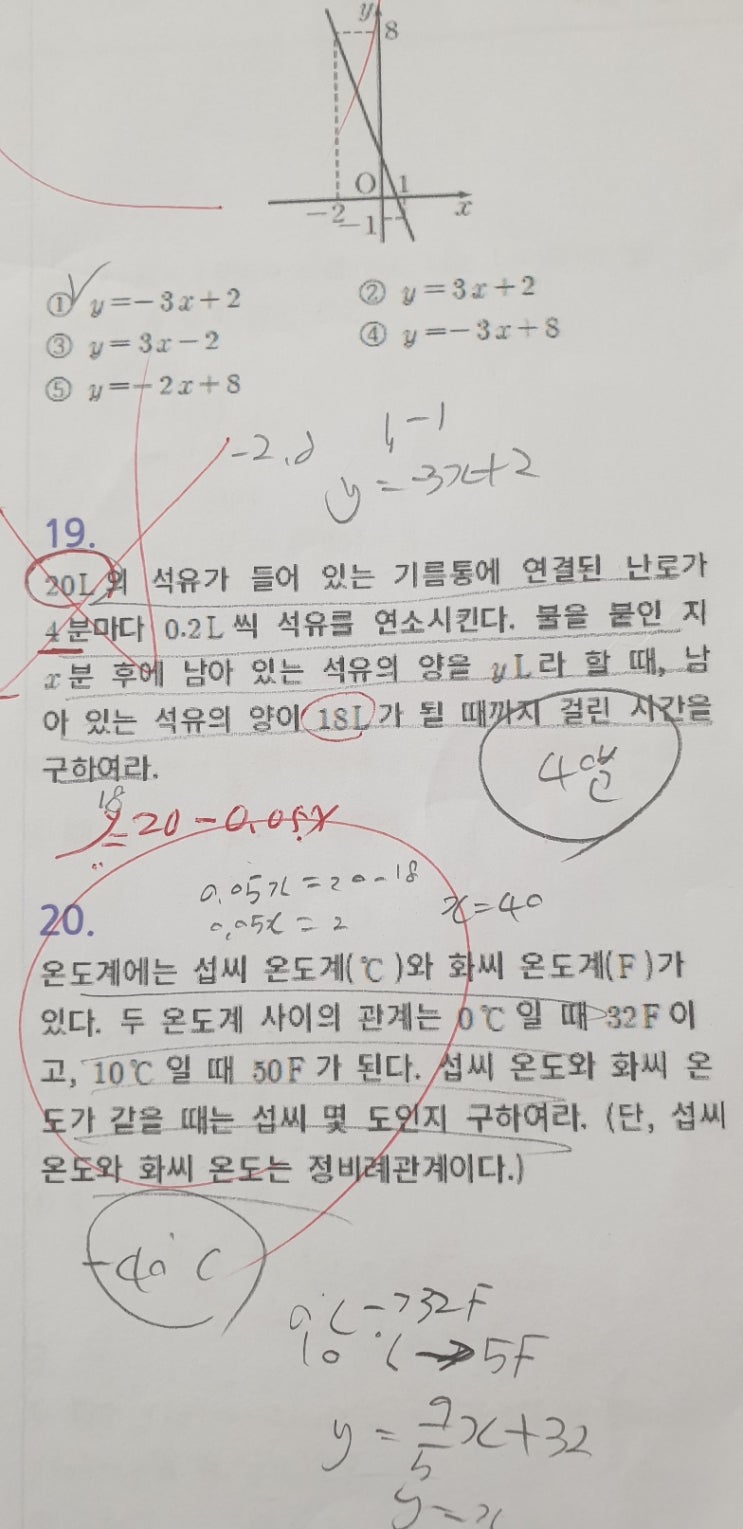 y
8
O 1
-2
-1
x
① y=-3x+2 ② y=3x+2
③ y=3x-2 ④ y=-3x+8
⑤ y=-2x+8
1,-1
y=-3x+2
19.
20L의 석유가 들어 있는 기름통에 연결된 난로가
4분마다 0.2L씩 석유를 연소시킨다. 불을 붙인 지
x분 후에 남아 있는 석유의 양을 yL라 할 때, 남
아 있는 석유의 양이 18L가 될 때까지 걸린 시간을
구하여라.
18
y=20-0.05x
0.05x=20-18
0.05x=2
x=40
20.
온도계에는 섭씨 온도계(℃)와 화씨 온도계(F)가
있다. 두 온도계 사이의 관계는 0℃일 때 32F이
고, 10℃일 때 50F가 된다. 섭씨 온도와 화씨 온
도가 같을 때는 섭씨 몇 도인지 구하여라. (단, 섭씨
온도와 화씨 온도는 정비례관계이다.)
-40°C
0°C->32F
10°C->5F
y=9/5x+32
y=x